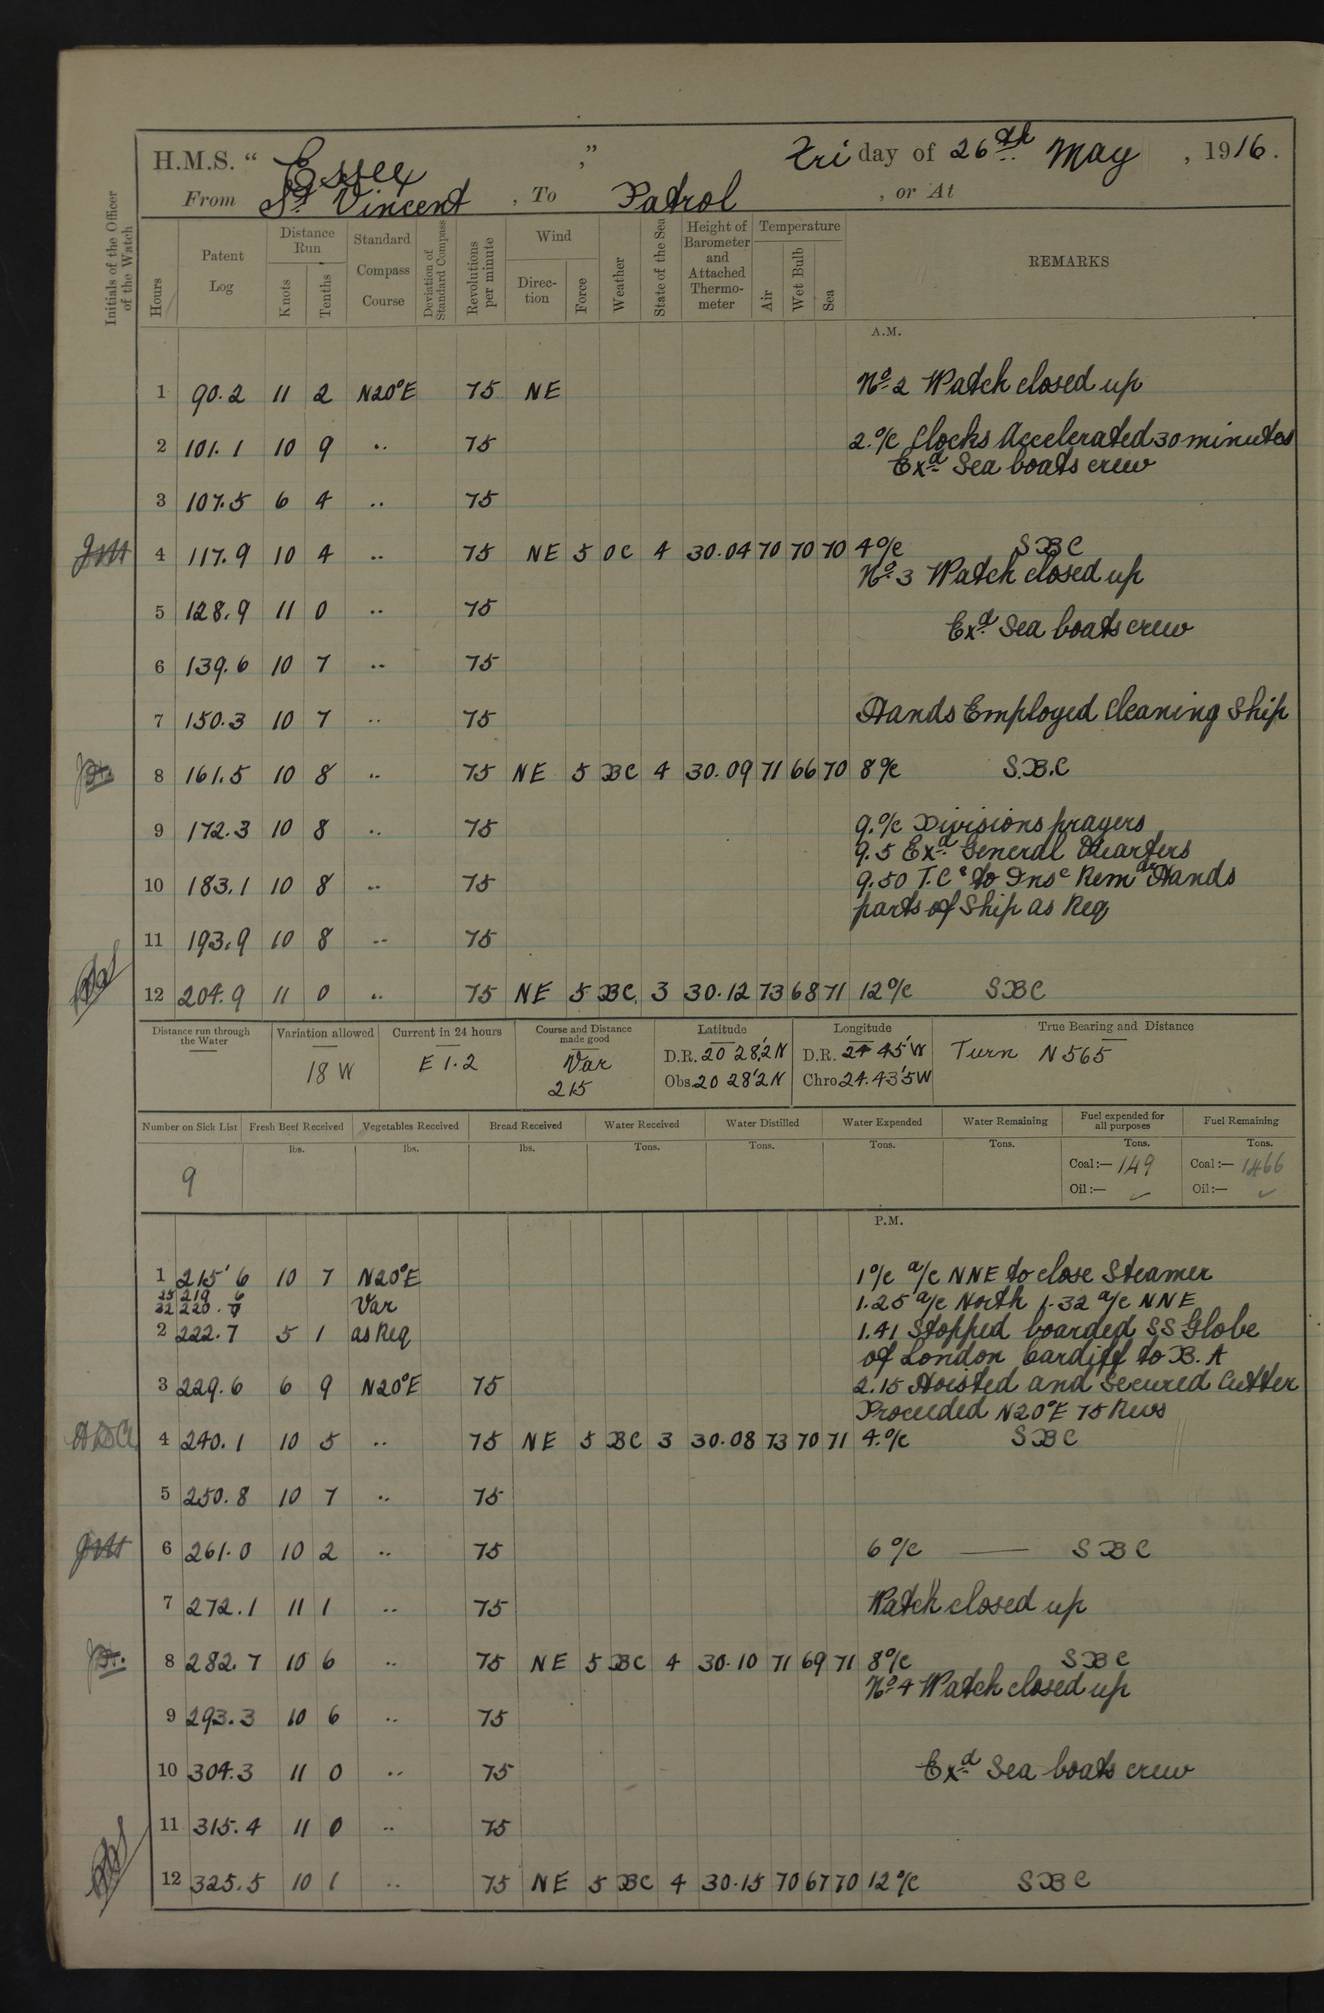 H.M.S. “ Essex ,” Fri day of 26th May , 1916.
From St Vincent , To Patrol , or At
Initials of the Officer of the Watch
Hours
Patent Log
Distance Run
Knots
Tenths
Standard Compass Course
Deviation of Standard Compass
Revolutions per minute
Wind
Direction
Force
Weather
State of the Sea
Height of Barometer and Attached Thermometer
Temperature
Air
Wet Bulb
Sea
REMARKS
A.M.
1 90.2 11 2 N20°E 75 NE No 2 Watch closed up
2 101.1 10 9 .. 75 2.o/c Clocks Accelerated 30 minutes
Exd Sea boats crew
3 107.5 6 4 .. 75
4 117.9 10 4 .. 75 NE 5 OC 4 30.04 70 70 70 4o/c SBC
No 3 Watch closed up
5 128.9 11 0 .. 75
Exd Sea boats crew
6 139.6 10 7 .. 75
7 150.3 10 7 .. 75 Hands Employed Cleaning Ship
8 161.5 10 8 .. 75 NE 5 BC 4 30.09 71 66 70 8o/c S.B.C
9 172.3 10 8 .. 75 9.o/c Divisions prayers
9.5 Exd General Quarters
10 183.1 10 8 .. 75 9.50 T.Cs to Insc Remdr Hands
parts of Ship as Req
11 193.9 10 8 .. 75
12 204.9 11 0 .. 75 NE 5 BC 3 30.12 73 68 71 12o/c SBC
Distance run through the Water
Variation allowed
18 W
Current in 24 hours
E 1.2
Course and Distance made good
Var
215
Latitude
D.R. 20 28'.2 N
Obs. 20 28'2 N
Longitude
D.R. 24 45' W
Chro 24.43'5 W
True Bearing and Distance
Turn N 565
Number on Sick List
9
Fresh Beef Received
lbs.
Vegetables Received
lbs.
Bread Received
lbs.
Water Received
Tons.
Water Distilled
Tons.
Water Expended
Tons.
Water Remaining
Tons.
Fuel expended for all purposes
Tons.
Coal:— 149
Oil:— ✓
Fuel Remaining
Tons.
Coal:— 1466
Oil:— ✓
P.M.
1 215'6 10 7 N20°E 1o/c a/c NNE to close Steamer
25 219 6 Var 1.25 a/c North 1.32 a/c NNE
32 220.
2 222.7 5 1 as Req 1.41 Stopped boarded SS Globe
of London Cardiff to B.A
3 229.6 6 9 N20°E 75 2.15 Hoisted and Secured Cutter
Proceeded N20°E 75 Revs
4 240.1 10 5 .. 75 NE 5 BC 3 30.08 73 70 71 4.o/c SBC
5 250.8 10 7 .. 75
6 261.0 10 2 .. 75 6 o/c —— SBC
7 272.1 11 1 .. 75 Watch closed up
8 282.7 10 6 .. 75 NE 5 BC 4 30.10 71 69 71 8o/c SBC
No 4 Watch closed up
9 293.3 10 6 .. 75
10 304.3 11 0 .. 75 Exd Sea boats crew
11 315.4 11 0 .. 75
12 325.5 10 1 .. 75 NE 5 BC 4 30.15 70 67 70 12o/c SBC